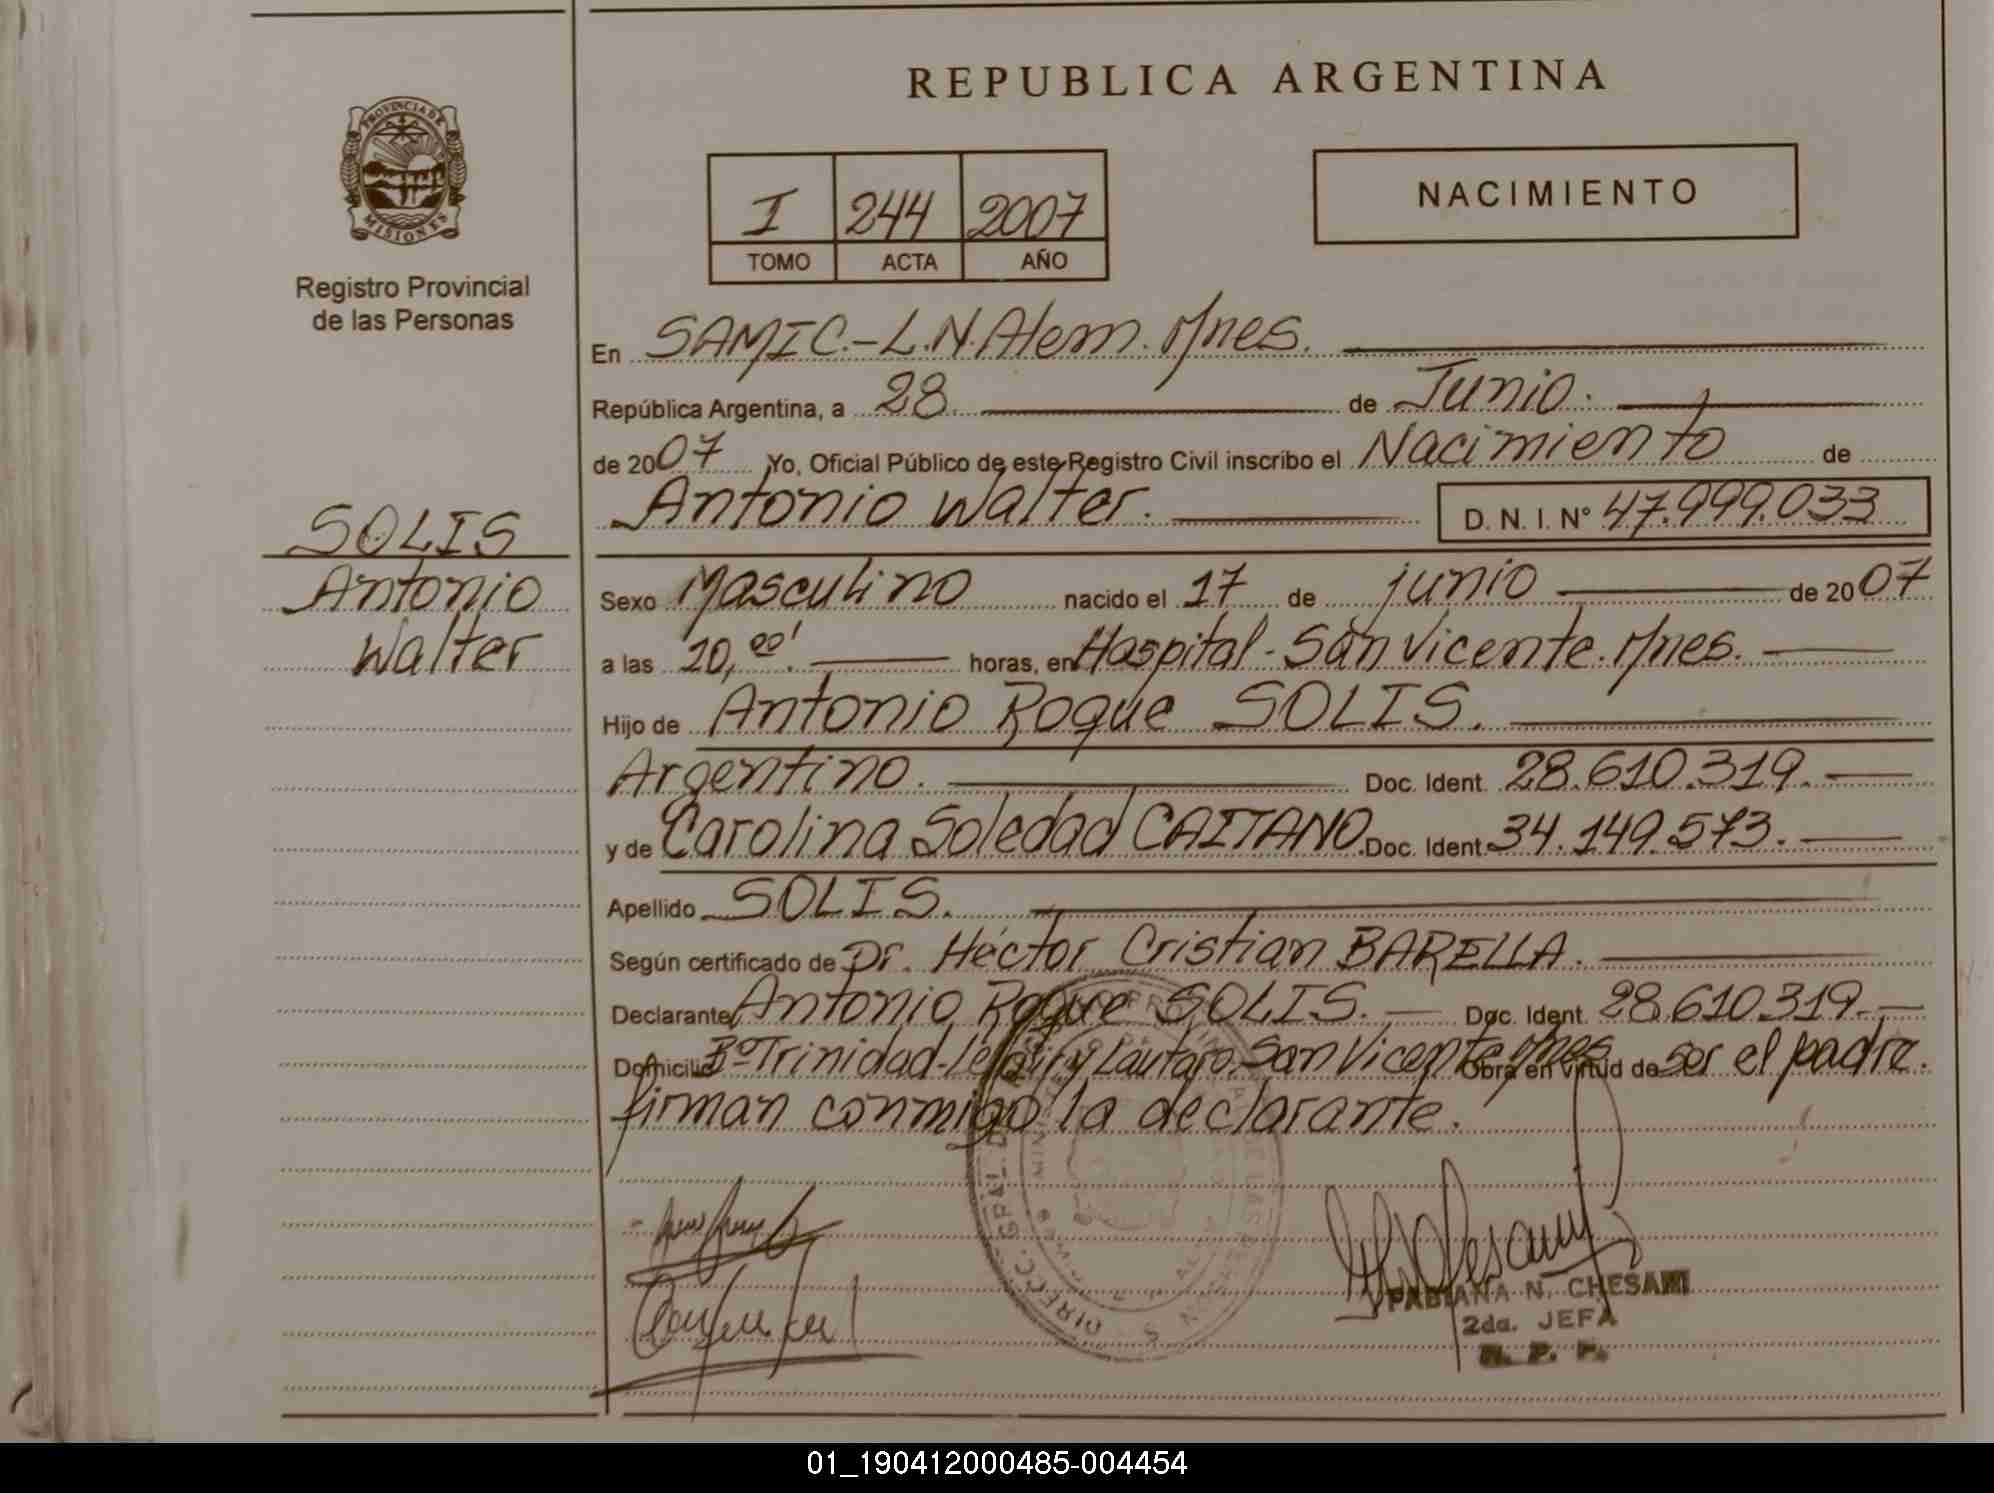 REPUBLICA ARGENTINA
PROVINCIA DE MISIONES
Registro Provincial
de las Personas
I 244 2007
TOMO ACTA AÑO
NACIMIENTO
En SAMIC.-L.N.Alem. Mnes.
República Argentina, a 28 de Junio.
de 2007 Yo, Oficial Público de este Registro Civil inscribo el Nacimiento de
Antonio Walter. D. N. I. Nº 47.999.033
SOLIS
Antonio
Walter
Sexo Masculino nacido el 17 de junio de 2007
a las 20,00'. horas, en Hospital-San Vicente. Mnes.
Hijo de Antonio Roque SOLIS.
Argentino. Doc. Ident. 28.610.319.
y de Carolina Soledad CAITANO. Doc. Ident. 34.149.573.
Apellido SOLIS.
Según certificado de Dr. Héctor Cristian BARELLA.
Declarante Antonio Roque SOLIS. Doc. Ident. 28.610.319.
Domicilio Bº Trinidad- y Lautaro. San Vicente. Mnes. Obra en virtud de ser el padre.
firman conmigo la declarante.
DIRECC. GRAL. DE
FABIANA N. CHESANI
2da. JEFA
R. P. P.
01_190412000485-004454